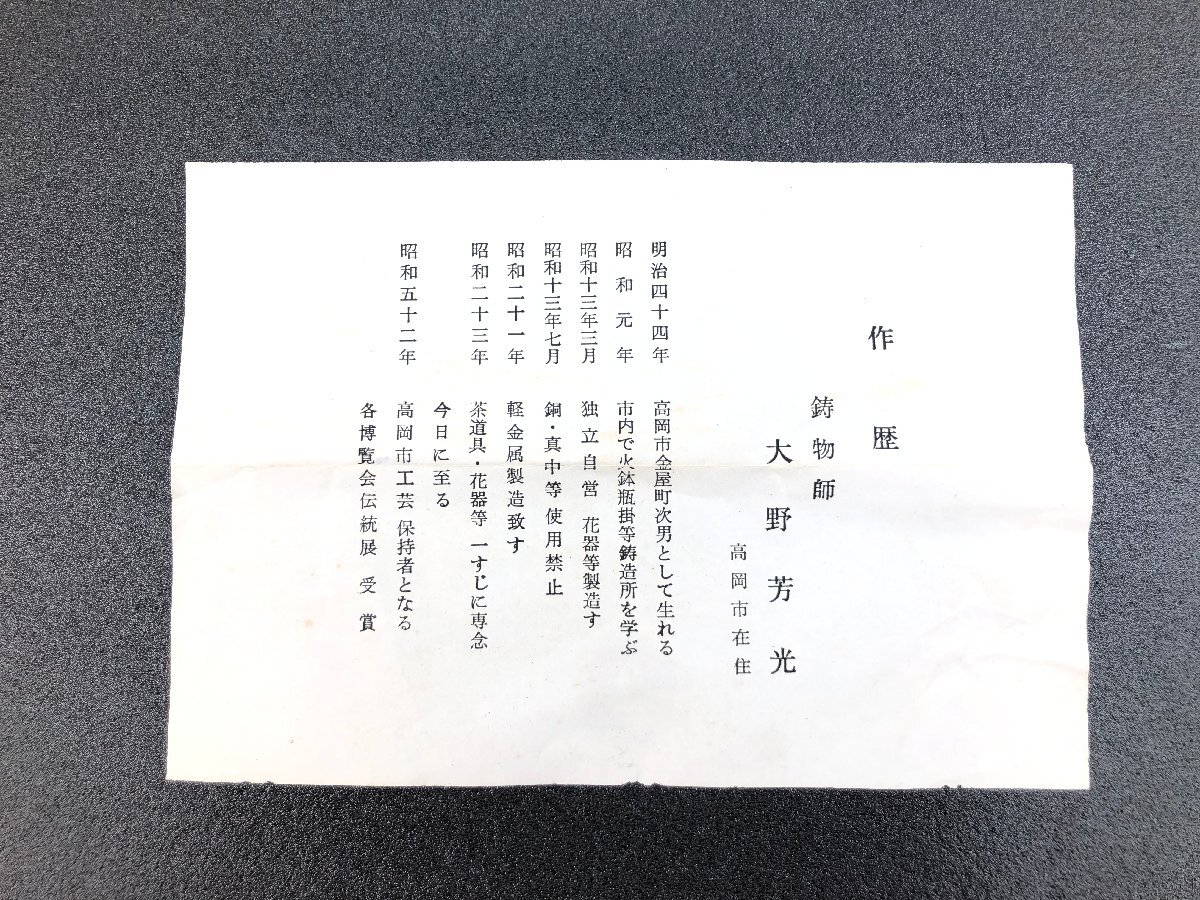 作歴
鋳物師
大野芳光
高岡市在住
明治四十四年 高岡市金屋町次男として生れる
昭和元年 市内で火鉢瓶掛等鋳造所を学ぶ
昭和十三年三月 独立自営 花器等製造す
昭和十三年七月 銅・真中等使用禁止
昭和二十一年 軽金属製造致す
昭和二十三年 茶道具・花器等一すじに専念
今日に至る
昭和五十二年 高岡市工芸保持者となる
各博覧会伝統展受賞